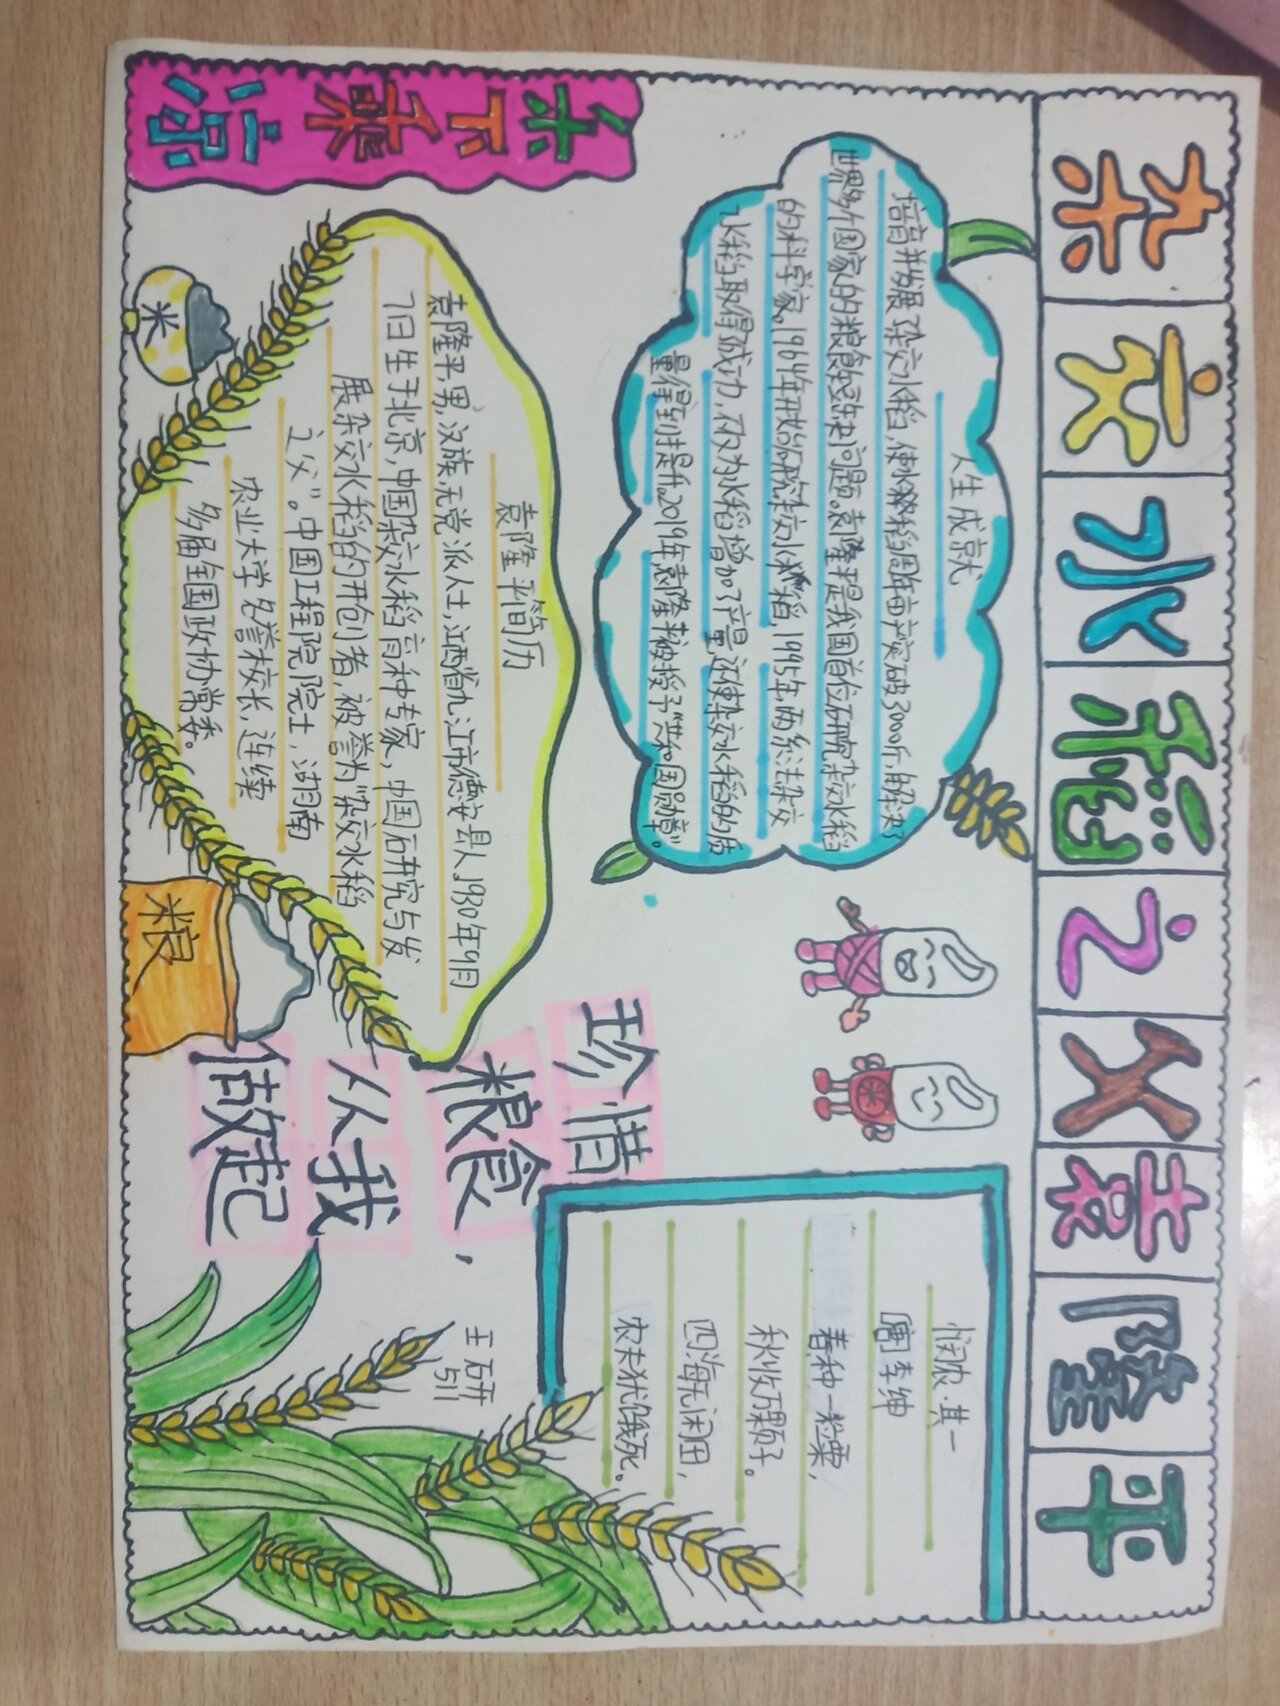 杂交水稻之父袁隆平
禾下乘凉
人生成就
培育并发展了杂交水稻,使水稻周年亩产突破3000斤,解决了
世界多个国家的粮食短缺问题。袁隆平是我国首位研究杂交水稻
的科学家。1964年开始研究杂交水稻,1995年,两系法杂交
水稻取得成功,不仅为水稻增加了产量,还使杂交水稻的质
量得到提升。2019年,袁隆平被授予"共和国勋章"。
袁隆平简历
袁隆平,男,汉族,无党派人士,江西省九江市德安县人。1930年9月
7日生于北京,中国杂交水稻育种专家,中国研究与发
展杂交水稻的开创者,被誉为"杂交水稻
之父"。中国工程院院士,湖南
农业大学名誉校长,连续
多届全国政协常委。
米
粮
珍惜
粮食,
从我
做起
悯农·其一
唐 李绅
春种一粒粟,
秋收万颗子。
四海无闲田,
农夫犹饿死。
王研
511